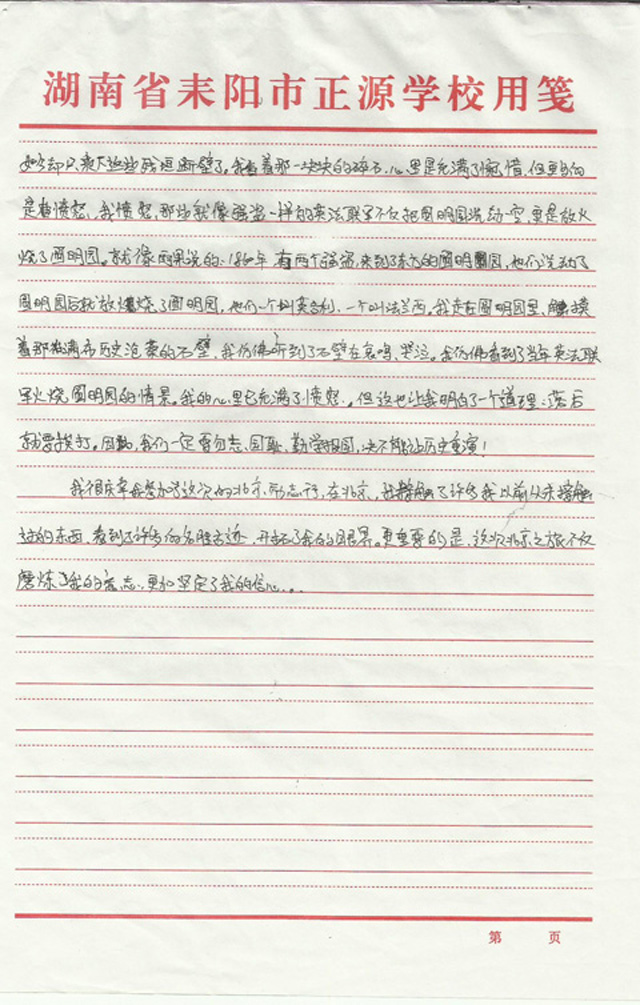 湖南省耒阳市正源学校用笺
如今却只剩下这些残垣断壁了。我看着那一块块的碎石,心里是充满了惋惜,但更多的
是着愤怒,我愤怒,那些就像强盗一样的英法联军不仅把圆明园洗劫一空,更是放火
烧了圆明园。就像雨果说的:1860年 有两个强盗,来到了东方的圆明园,他们洗劫了
圆明园后就放火烧了圆明园,他们一个叫英吉利,一个叫法兰西。我走在圆明园里,触摸
着那布满历史沧桑的石壁,我仿佛听到了石壁在哀鸣,哭泣。我仿佛看到了当年英法联
军火烧圆明园的情景。我的心里已充满了愤怒。但这也让我明白了一个道理:落后
就要挨打。因此,我们一定要勿忘国耻,勤学报国,决不能让历史重演!
我很庆幸我参加了这次的北京励志行,在北京,我接触了许多我以前从未接触
过的东西,看到了许多的名胜古迹,开拓了我的眼界。更重要的是,这次北京之旅不仅
磨炼了我的意志,更加坚定了我的信心...
第 页